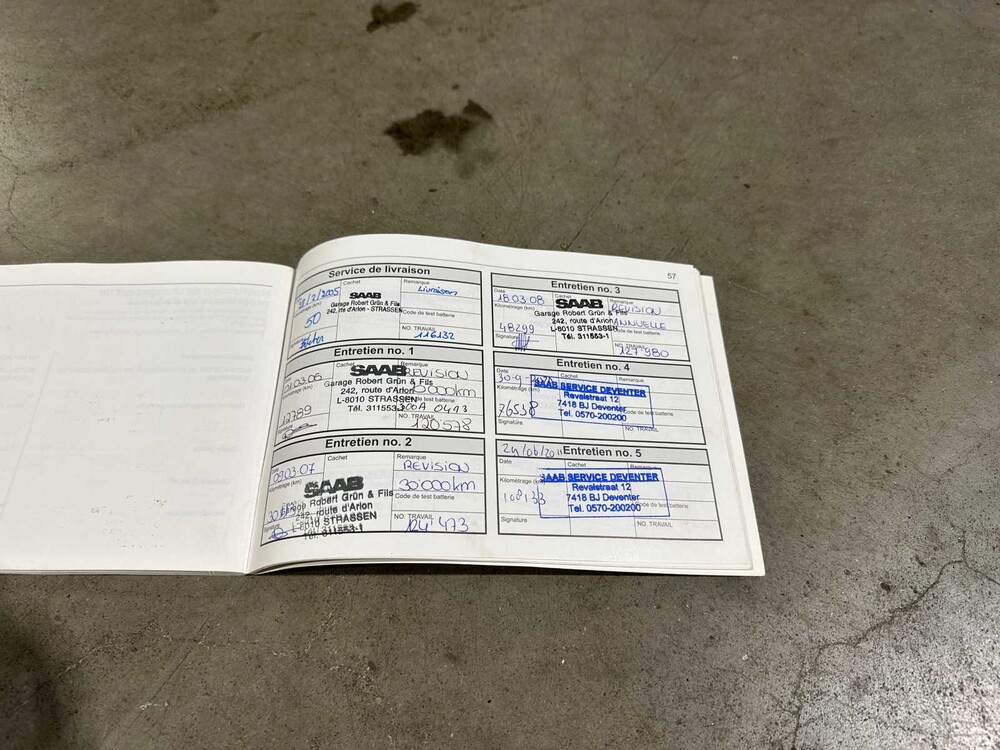 57
Service de livraison
Cachet
Remarque
Livraison
50
SAAB
Garage Robert Grün & Fils
242, rte d'Arlon - STRASSEN
Code de test batterie
NO. TRAVAIL
116132
Entretien no. 1
Cachet
Remarque
REVISION
01.03.06
SAAB
Garage Robert Grün & Fils
242, route d'Arlon
L-8010 STRASSEN
Tél. 311553
12789
120578
Entretien no. 2
Cachet
Remarque
REVISION
09.03.07
30'000km
SAAB
Garage Robert Grün & Fils
242, route d'Arlon
L-8010 STRASSEN
Tél. 311553-1
Code de test batterie
NO. TRAVAIL
124'473
Entretien no. 3
Date
18.03.08
Remarque
REVISION
ANNUELLE
Kilométrage (km)
48299
Signature
SAAB
Garage Robert Grün & Fils
242, route d'Arlon
L-8010 STRASSEN
Tél. 311553-1
Code de test batterie
NO. TRAVAIL
127'980
Entretien no. 4
Date
Cachet
Remarque
Kilométrage (km)
76538
Signature
SAAB SERVICE DEVENTER
Revalstraat 12
7418 BJ Deventer
Tel. 0570-200200
Code de test batterie
NO. TRAVAIL
24/06/2011
Entretien no. 5
Date
Cachet
Remarque
Kilométrage (km)
108133
Signature
SAAB SERVICE DEVENTER
Revalstraat 12
7418 BJ Deventer
Tel. 0570-200200
Code de test batterie
NO. TRAVAIL